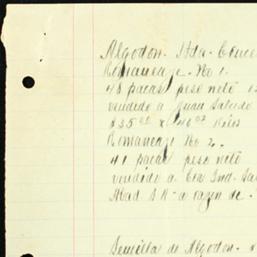 Algodon. Hda. Conce
Romaneaje. No 1.
48 pacas peso neto
vendido a Juan Salcido
$35.00 x 46.02 Kilos
Romaneaje No 2.
41 pacas peso neto
vendido a Cia Ind. Ja
Abad S A - a razon de.
Semilla de Algodon.